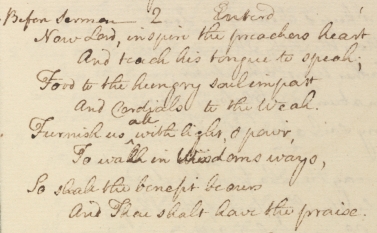 Before Sermon 2 Enterd
Now Lord, inspire the preachers heart
And teach his tongue to speak;
Food to the hungry soul impart
And Cordials to the Weak.
Furnish us all with light, & pow'r,
To walk in Wisdoms ways,
So shall the benefit be ours
And Thou shalt have the praise.